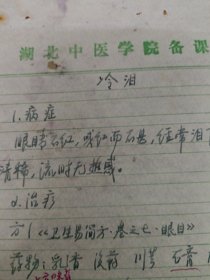 湖北中医学院备课
冷泪
1.病症
眼睛不红,或红而不甚,经常泪
清稀,流时无热感。
2.治疗
方(《卫生易简方·卷之七·眼目》
药物:乳香 没药 川芎 石膏